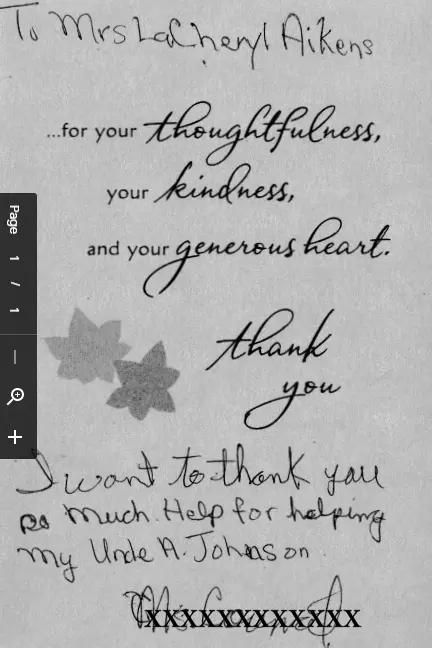 To Mrs LaCheryl Aikens
...for your thoughtfulness,
your kindness,
and your generous heart.
Page 1 / 1
thank
you
I want to thank you
so Much. Help for helping
my Uncle A. Johnson
xxxxxxxxxxxx